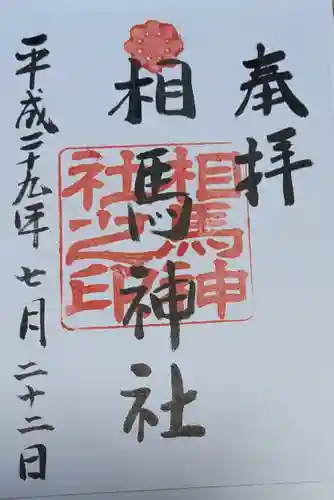 奉拝
相馬神社
相馬神社之印
平成二十九年七月二十二日